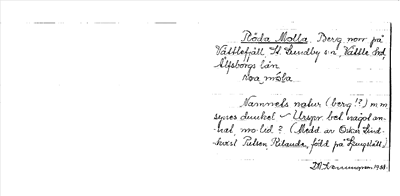 Röda Molla. Berg norr på
Vättlefjäll St. Lundby s:n, Vättle hd,
Älfsborgs län
roa mola
Namnets natur (berg!?) m m
synes dunkel – Urspr. bet. något an-
nat, mo-lid? (Medd. av Oskar Lind-
kvist Rebäcka, född på Ljungslätt)
1938.